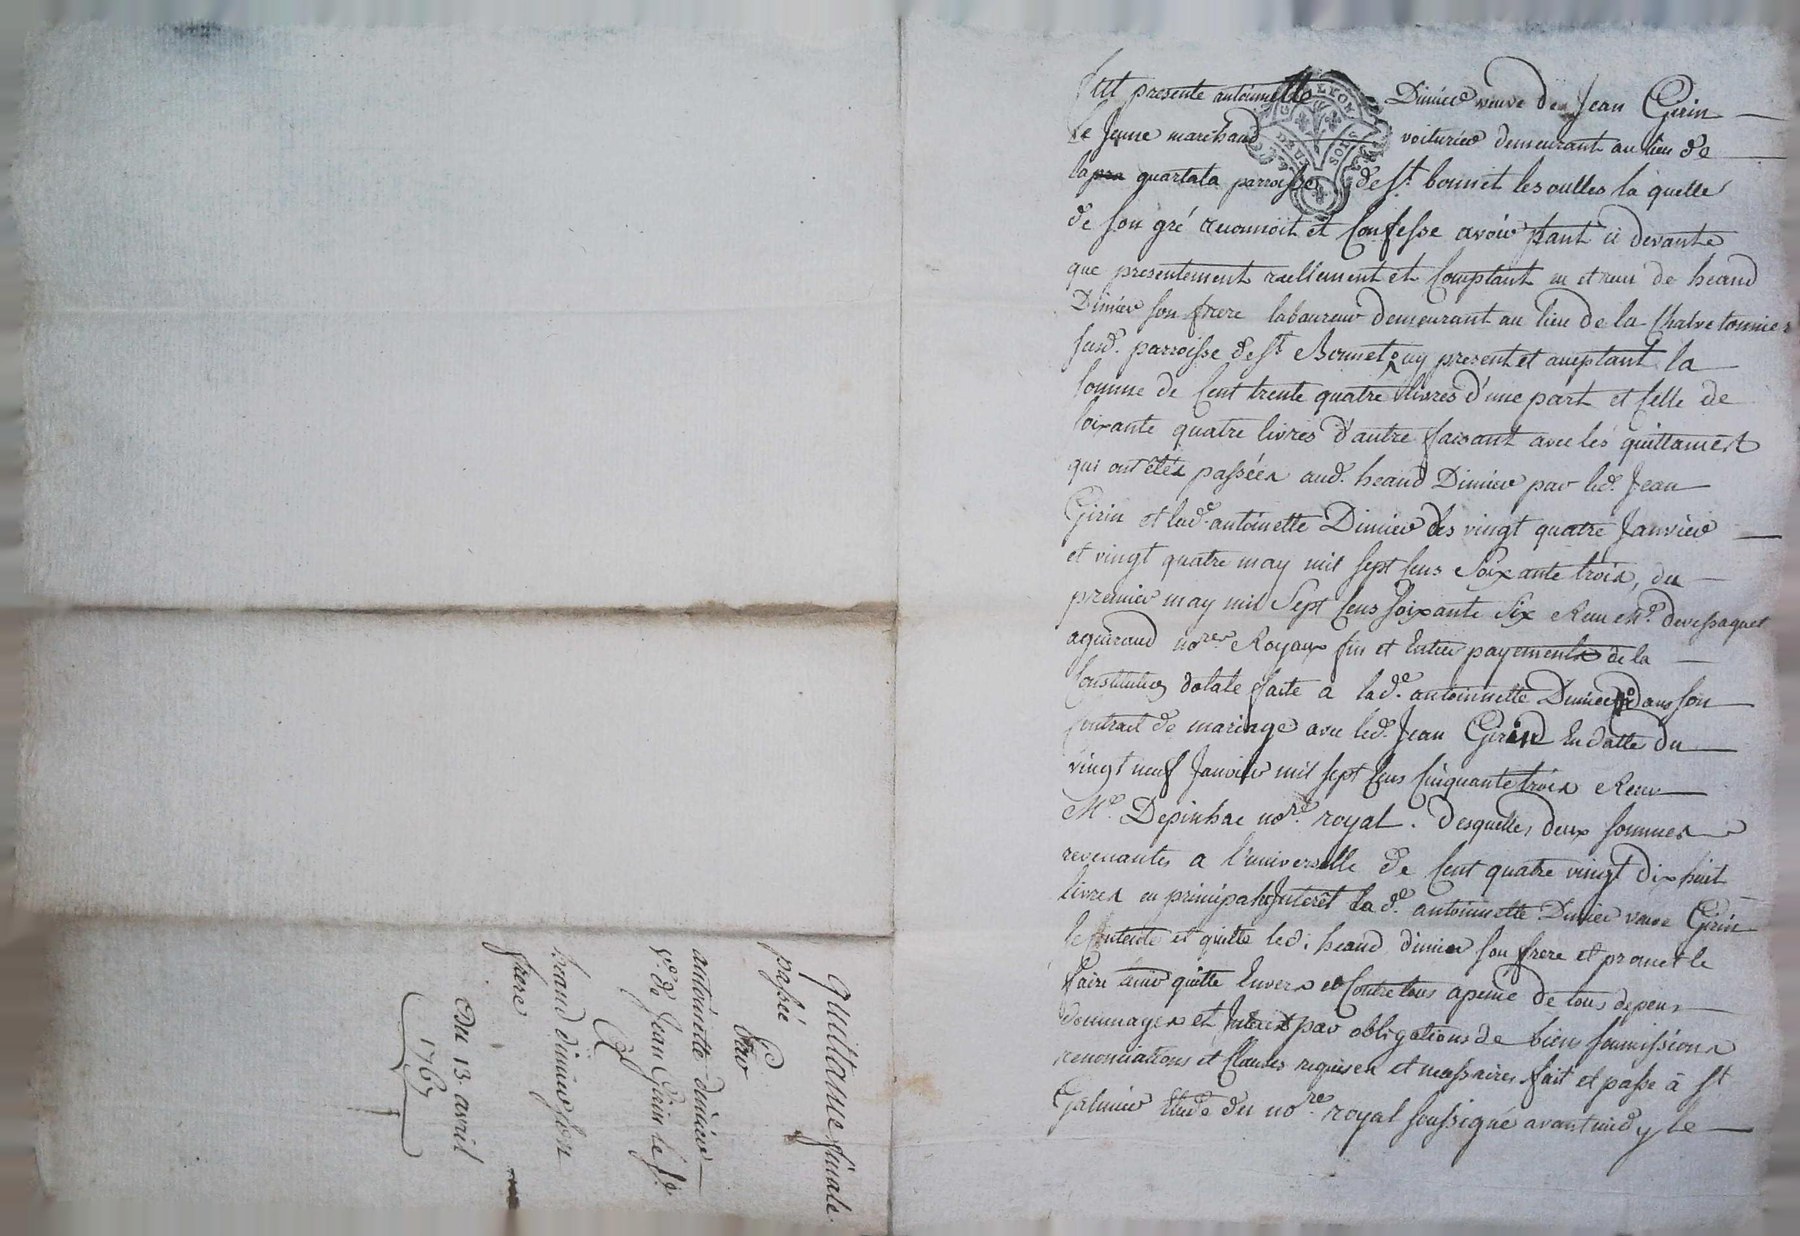 quittance finale
passée
par
antoinette dimier
v.e de Jean Girin le J.e
a
heand dimier son
frere
Du 13 avril
1767
fut presente antoinette Dimier veuve de Jean Girin
le Jeune marchand voiturier demeurant au lieu de
la quartala parroisse de St. bonnet les oulles la quelle
de son gré reconnoit et Confesse avoir tant ci devante
que presentement reellement et Comptant eu et reçu de heand
Dimier son frere laboureur demeurant au lieu de la Chalvetonnier
susd. parroisse de St. Bonnet, icy present et aceptant la
somme de Cent trente quatre livres d'une part et Celle de
soixante quatre livres d'autre faisant avec les quittances
qui ont étés passées aud. heand Dimier par led. Jean
Girin et lad.e antoinette Dimier des vingt quatre Janvier
et vingt quatre may mil sept Cens Soixante trois, du
premier may mil Sept Cens soixante Six Recu Me.
no.res Royaux fin et Entier payement de la
Constitution dotale faite a lad.e antoinette Dimier dans son
contrait de mariage avec led. Jean Girin En datte du
vingt neuf Janvier mil sept Cens Cinquante trois Recu
Me. Depinhac no.re royal. desquelles deux sommes
revenantes a l'universelle de Cent quatre vingt dix huit
livres en principal Interêt lad.e antoinette Dimier veuve Girin
se Contente et quitte led. heand dimier son frere et promet le
faire tenir quitte Envers et Contre tous apeine de tous depens
dommages et Interêt par obligations de biens soumissions
renonciations et Clauses requises et necessaires fait et passé à St.
Galmier Etude du no.re royal soussigné avant midy le
LYON
DEUX SOLS